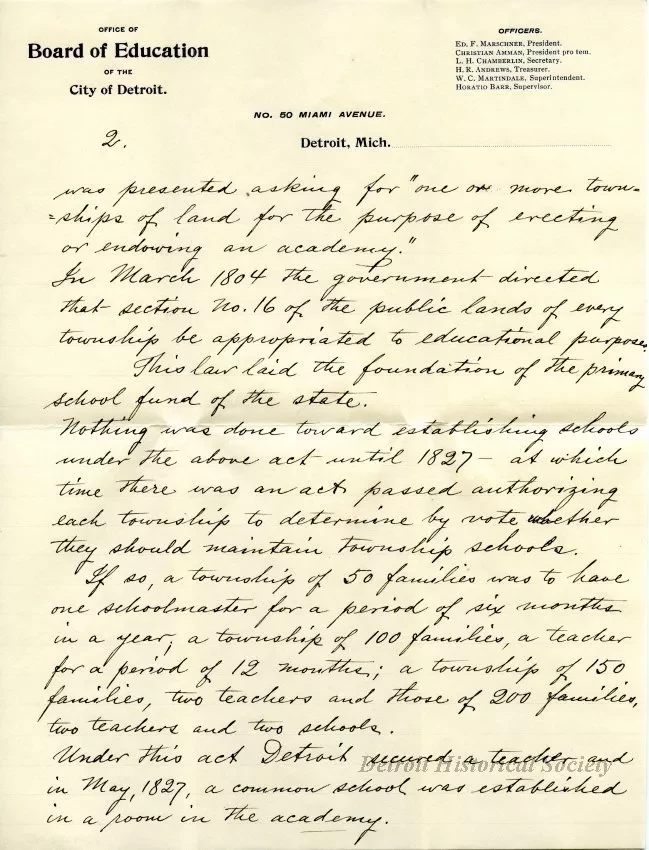 OFFICE OF
Board of Education
OF THE
City of Detroit.
OFFICERS.
ED. F. MARSCHNER, President.
CHRISTIAN AMMAN, President pro tem.
L. H. CHAMBERLIN, Secretary.
H. R. ANDREWS, Treasurer.
W. C. MARTINDALE, Superintendent.
HORATIO BARR, Supervisor.
NO. 50 MIAMI AVENUE.
2.
Detroit, Mich.
was presented asking for "one or more town=
=ships of land for the purpose of erecting
or endowing an academy."
In March 1804 the government directed
that section No. 16 of the public lands of every
township be appropriated to educational purposes.
This law laid the foundation of the primary
school fund of the state.
Nothing was done toward establishing schools
under the above act until 1827 – at which
time there was an act passed authorizing
each township to determine by vote whether
they should maintain township schools.
If so, a township of 50 families was to have
one schoolmaster for a period of six months
in a year; a township of 100 families, a teacher
for a period of 12 months; a township of 150
families, two teachers and those of 200 families,
two teachers and two schools.
Under this act Detroit secured a teacher and
Detroit Historical Society
in May, 1827, a common school was established
in a room in the academy.